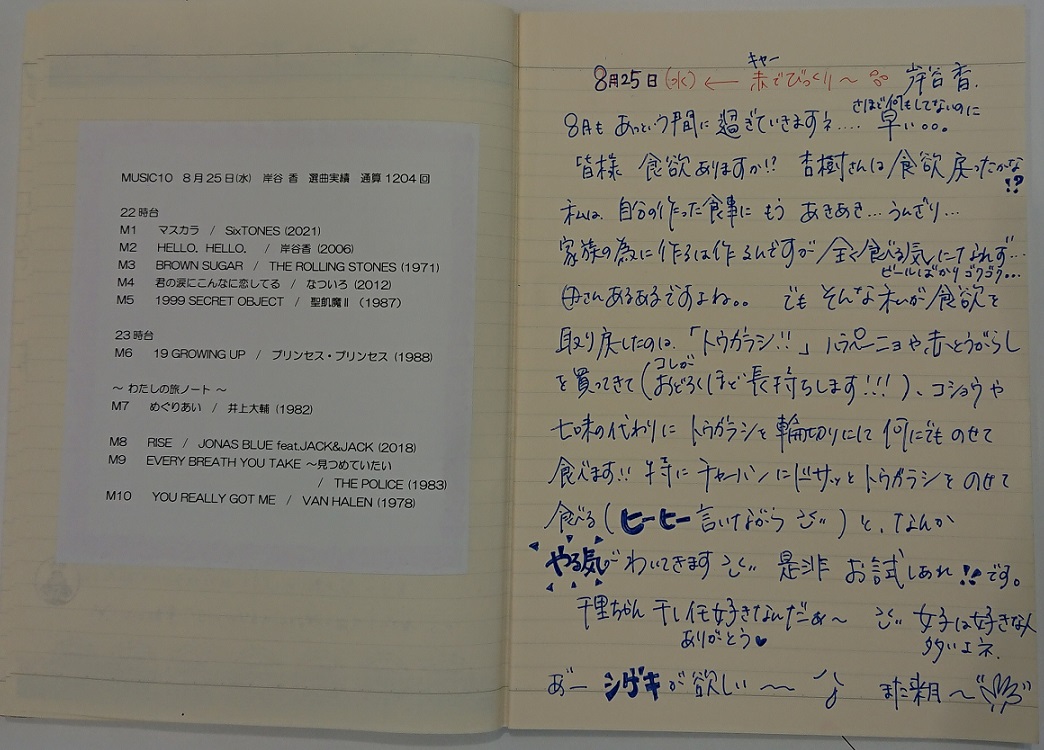 MUSIC10 8月25日(水) 岸谷 香 選曲実績 通算1204回
22時台
M1 マスカラ / SixTONES (2021)
M2 HELLO. HELLO. / 岸谷香 (2006)
M3 BROWN SUGAR / THE ROLLING STONES (1971)
M4 君の涙にこんなに恋してる / なついろ (2012)
M5 1999 SECRET OBJECT / 聖飢魔Ⅱ (1987)
23時台
M6 19 GROWING UP / プリンセス・プリンセス (1988)
～ わたしの旅ノート ～
M7 めぐりあい / 井上大輔 (1982)
M8 RISE / JONAS BLUE feat.JACK&JACK (2018)
M9 EVERY BREATH YOU TAKE ～見つめていたい
/ THE POLICE (1983)
M10 YOU REALLY GOT ME / VAN HALEN (1978)
キャー
8月25日(水) ← 赤でびっくり～ 岸谷香.
さほど何もしてないのに
8月も あっという間に 過ぎていきますネ.... 早い。。。
皆様 食欲ありますか!? 杏樹さんは 食欲 戻ったかな!?
私は、自分の作った食事に もう あきあき… うんざり…
家族の為に 作るは作るんですが 全く食べる気になれず…
ビールばかり ゴクゴク…
母さんあるあるですよね。。 でも そんな 私が 食欲を
取り戻したのは、「トウガラシ!!」 ハラペーニョや、赤とうがらし
コレが
を買ってきて(おどろくほど長持ちします!!!)、コショウや
七味の代わりに トウガラシを 輪切りにして 何にでも のせて
食べます!! 特に チャーハンに ドサッと トウガラシを のせて
食べる(ヒーヒー 言いながら) と、なんか
やる気が わいてきます 是非 お試しあれ!! です。
千里ちゃん 干し芋 好きなんだぁ～ 女子は好きな人
ありがとう♥ 多いよネ.
あ゛ー シゲキ が 欲しい ～～ また来月～